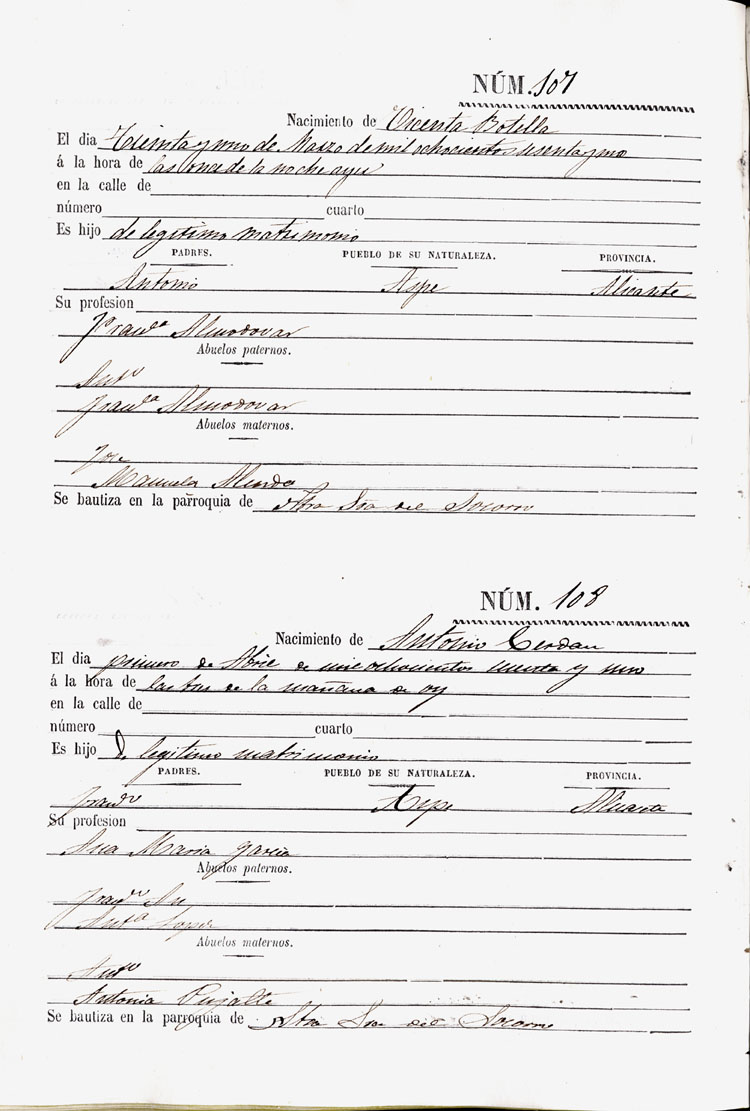 NÚM. 107
Nacimiento de Vicenta Botella
El dia Treinta y uno de Marzo de mil ochocientos sesenta y uno
á la hora de las once de la noche ayer
en la calle de
número cuarto
Es hijo de legitimo matrimonio
PADRES. PUEBLO DE SU NATURALEZA. PROVINCIA.
Antonio Aspe Alicante
Su profesion
Fran.ca Almodovar
Abuelos paternos.
Ant.o
Fran.ca Almodovar
Abuelos maternos.
Jose
Manuela
Se bautiza en la parroquia de Ntra Sra del Socorro
NÚM. 108
Nacimiento de Antonio Cerdan
El dia primero de Abril de mil ochocientos sesenta y uno
á la hora de las tres de la mañana de oy
en la calle de
número cuarto
Es hijo de legitimo matrimonio
PADRES. PUEBLO DE SU NATURALEZA. PROVINCIA.
Fran.co Aspe Alicante
Su profesion
Ana Maria Garcia
Abuelos paternos.
Fran.co
Ant.a Lopez
Abuelos maternos.
Ant.o
Antonia Pujalte
Se bautiza en la parroquia de Ntra Sra del Socorro